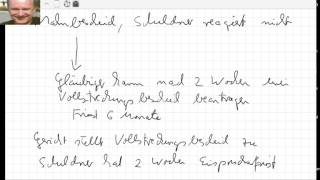 Mahnbescheid, Schuldner reagiert nicht
Gläubiger kann nach 2 Wochen einen
Vollstreckungsbescheid beantragen
Frist 6 Monate
Gericht stellt Vollstreckungsbescheid zu
Schuldner hat 2 Wochen Einspruchsfrist